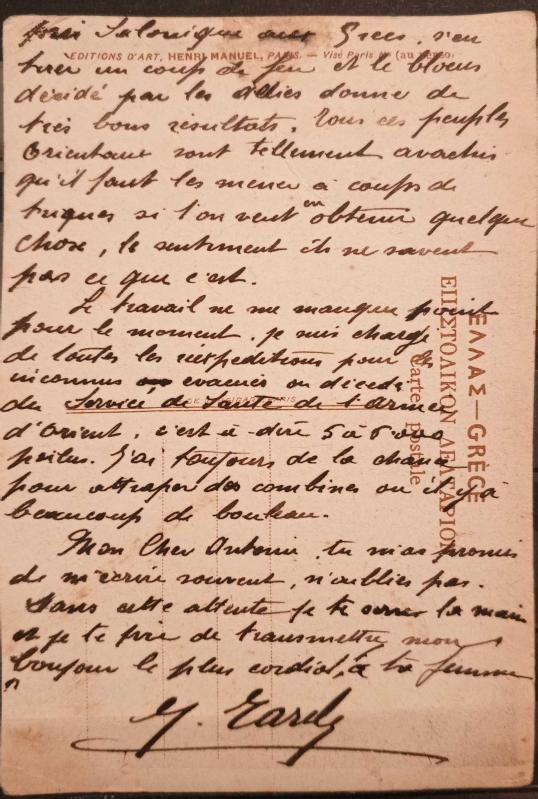 Salonique aux Grecs, s'en
EDITIONS D'ART, HENRI MANUEL, PARIS. — Visé Paris N° (au verso)
tirer un coup de feu et le blocus
décidé par les alliés donne de
très bons résultats. Tous ces peuples
Orientaux sont tellement avachis
qu'il faut les mener à coups de
triques si l'on veut en obtenir quelque
chose, le sentiment ils ne savent
pas ce que c'est.
Le travail ne me manque point
pour le moment, je suis chargé
de toutes les réexpeditions pour les
inconnus evacués ou décédés
du Service de Santé de l'Armée
d'Orient, c'est à dire 5 à 6000
poilus. J'ai toujours de la chance
pour attraper des combines ou il y a
beaucoup de bouleau.
Mon Cher Antonin, tu m'as promis
de m'écrire souvent, n'oublies pas.
Dans cette attente je te serre la main
et je te prie de transmettre mon
bonjour le plus cordial, à ta femme
ΕΛΛΑΣ—GRÈCE
ΕΠΙΣΤΟΛΙΚΟΝ ΔΕΛΤΑΡΙΟΝ
Carte postale